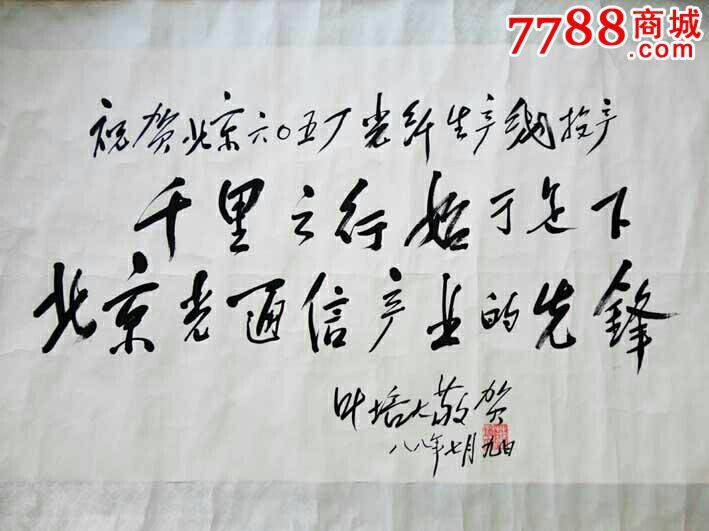 7788商城
.com
祝贺北京六〇五厂光纤生产线投产
千里之行始于足下
北京光通信产业的先锋
叶培大敬贺
八八年七月九日